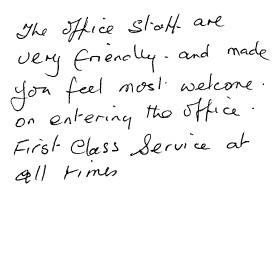 The office staff are
very friendly. and made
you feel most welcome.
on entering the office.
First Class Service at
all times